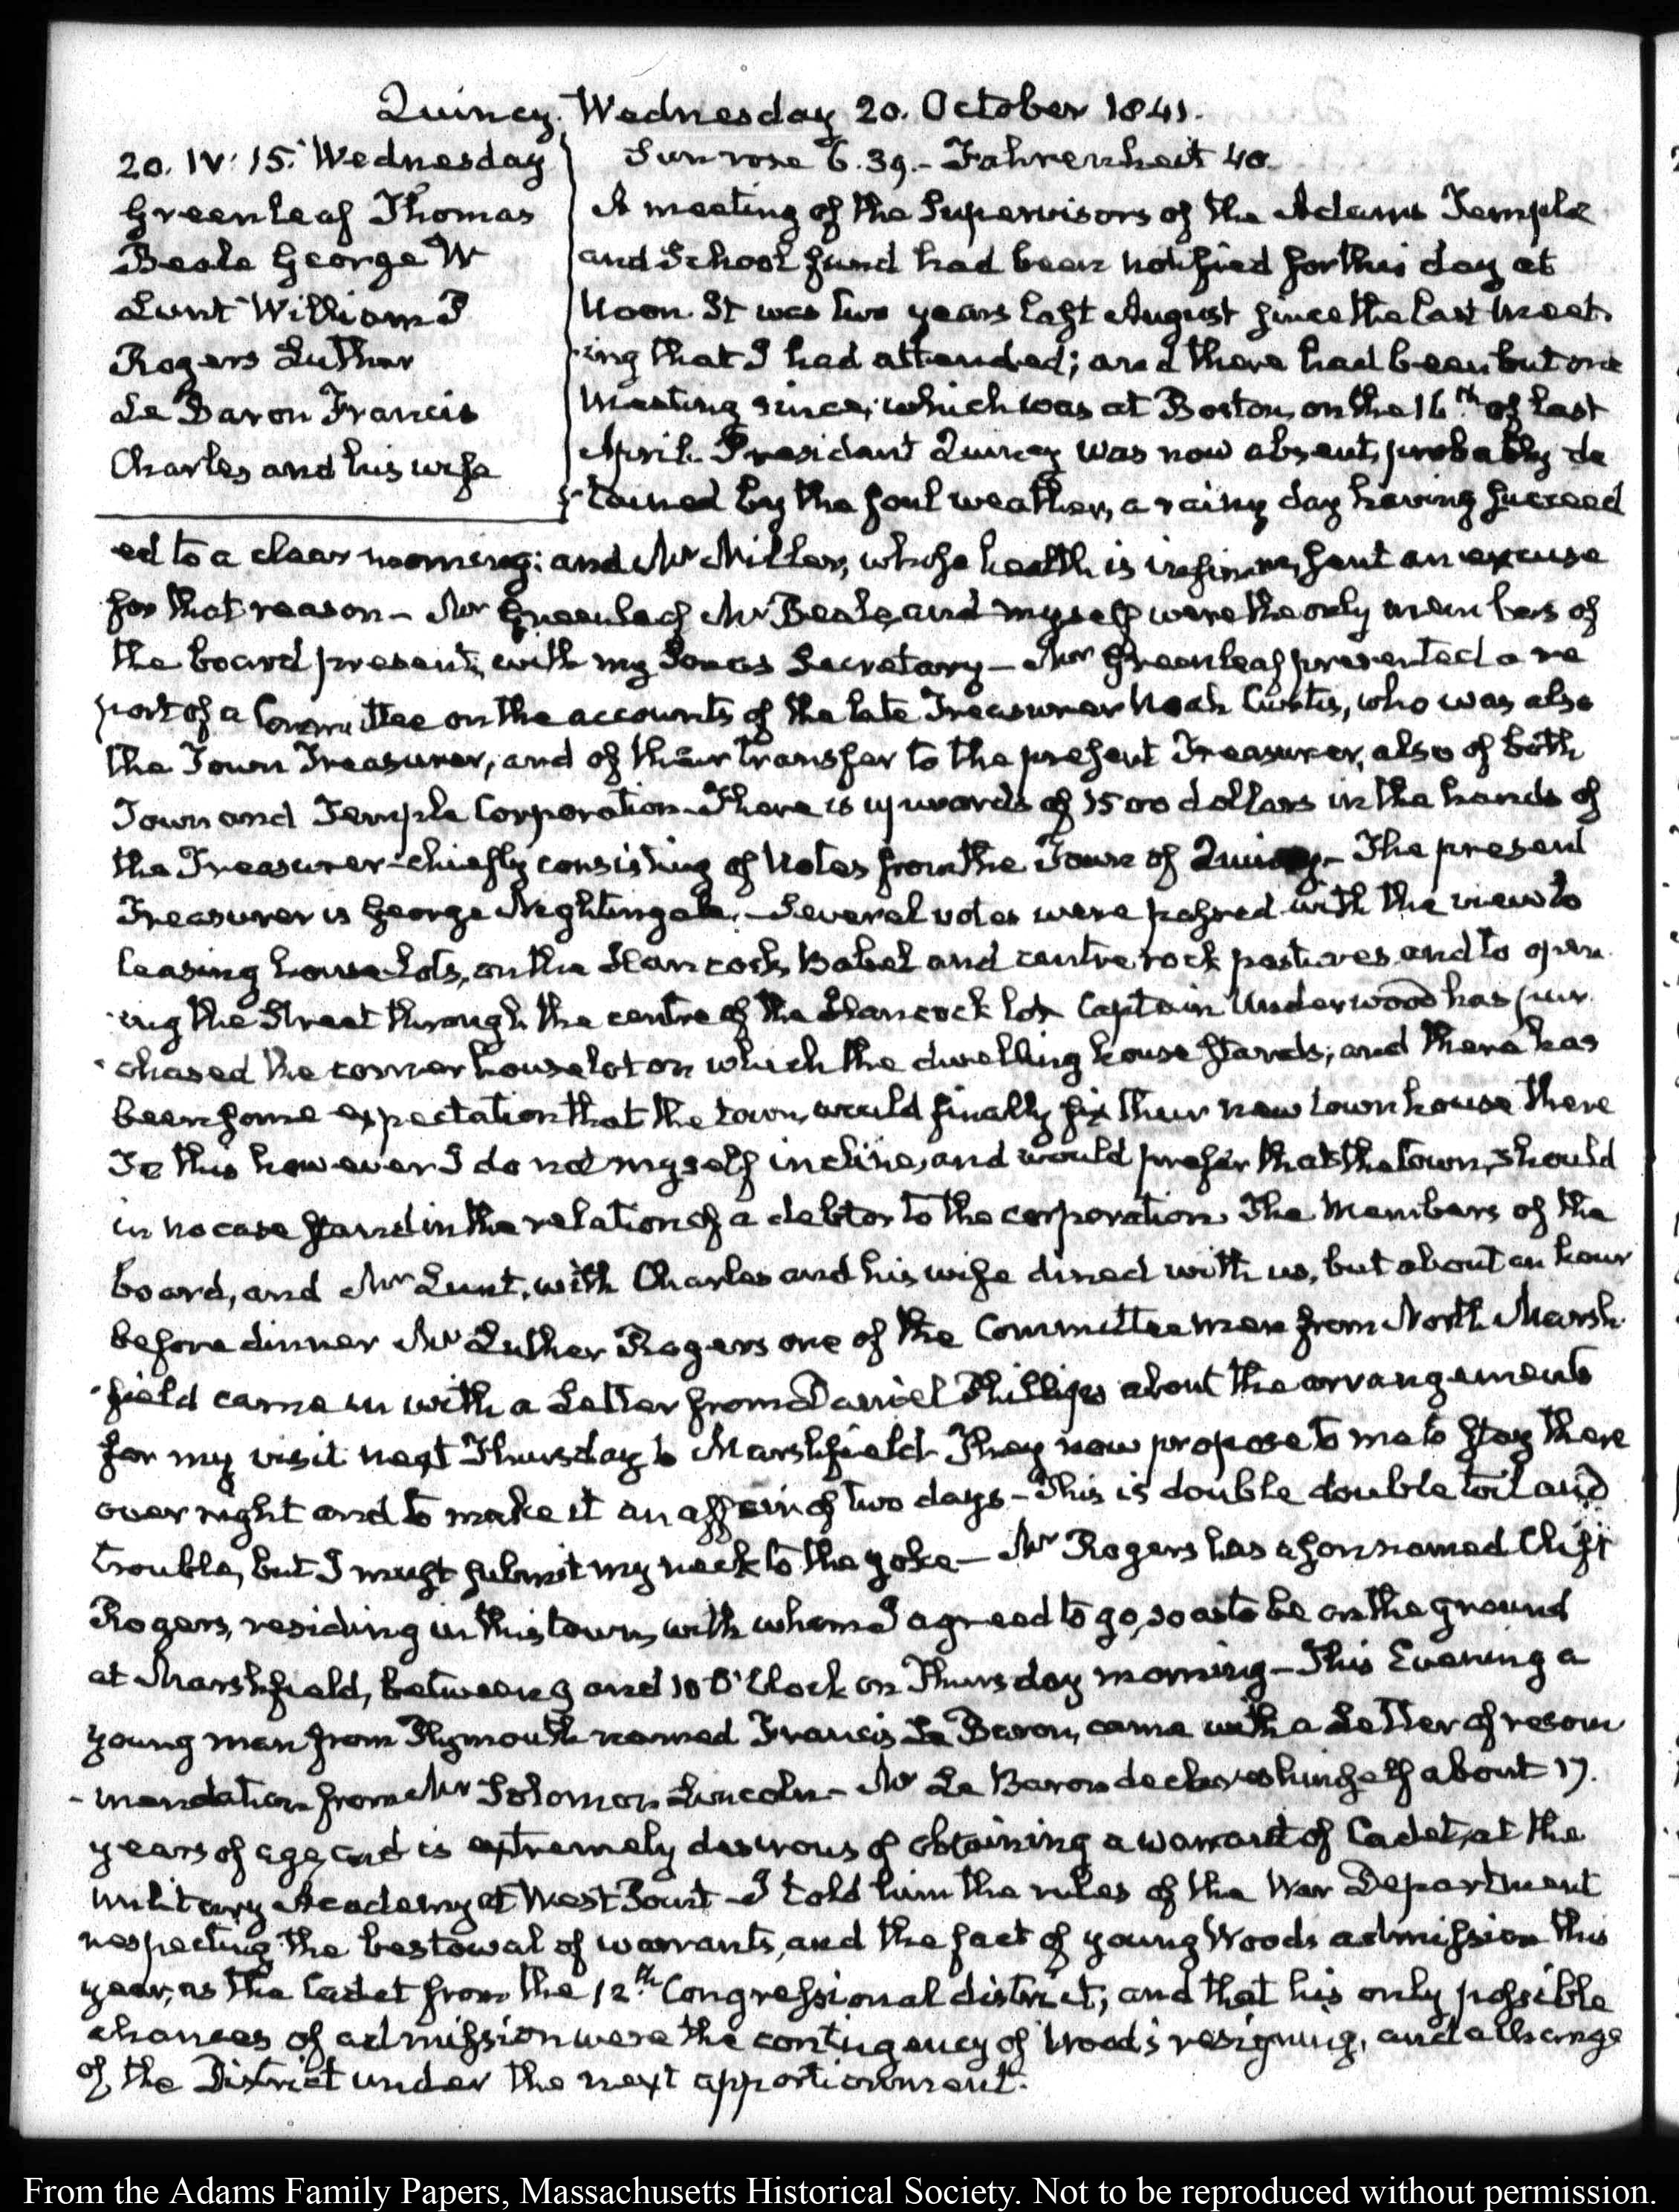 Quincy. Wednesday 20. October 1841.
20. IV: 15. Wednesday
Greenleaf Thomas
Beale George W
Lunt William P
Rogers Luther
Le Baron Francis
Charles and his wife
Sun rose 6.39.- Fahrenheit 40.
A meeting of the Supervisors of the Adams Temple
and School fund had been notified for this day at
Noon. It was two years last August since the last meet-
-ing that I had attended; and there had been but one
meeting since, which was at Boston, on the 16th of last
April. President Quincy was now absent, probably de
-tained by the foul weather, a rainy day having succeed
ed to a clear morning: and Mr Miller, whose health is infirm, sent an excuse
for that reason- Mr Greenleaf Mr Beale, and myself were the only members of
the board present, with my Son as Secretary- Mr Greenleaf presented a re
port of a Committee on the accounts of the late Treasurer Noah Curtis, who was also
the Town Treasurer, and of their transfer to the present Treasurer, also of both
Town and Temple Corporation. There is upwards of 1500 dollars in the hands of
the Treasurer- chiefly consisting of Notes from the Town of Quincy- The present
Treasurer is George Nightingale.- Several votes were passed with the view to
leasing house lots, on the Hancock, Babel and centre rock pastures, and to open
-ing the Street through the centre of the Hancock lot. Captain Underwood has pur
-chased the corner house lot on which the dwelling house stands; and there has
been some expectation that the town, would finally fix their new town house there
To this however I do not myself incline, and would prefer that the town, should
in no case stand in the relation of a debtor to the corporation. The Members of the
board, and Mr Lunt, with Charles and his wife dined with us, but about an hour
before dinner Mr Luther Rogers one of the Committee men from North Marsh-
-field came in with a Letter from Daniel Phillips about the arrangements
for my visit next Thursday to Marshfield. They now propose to me to stay there
over night and to make it an affair of two days- This is double double toil and
trouble, but I must submit my neck to the yoke- Mr Rogers has a son named Clift
Rogers, residing in this town, with whom I agreed to go, so as to be on the ground
at Marshfield, between 9 and 10 O'Clock on Thursday morning- This Evening a
young man from Plymouth named Francis Le Baron, came with a Letter of recom
-mendation from Mr Solomon Lincoln- Mr Le Baron declares himself about 17.
years of age, and is extremely desirous of obtaining a warrant of Cadet, at the
military Academy at West Point- I told him the rules of the War Department
respecting the bestowal of warrants, and the fact of young Woods admission this
year, as the Cadet from the 12th Congressional district; and that his only possible
chances of admission were the contingency of Wood's resigning, and a change
of the District under the next apportionment.
From the Adams Family Papers, Massachusetts Historical Society. Not to be reproduced without permission.